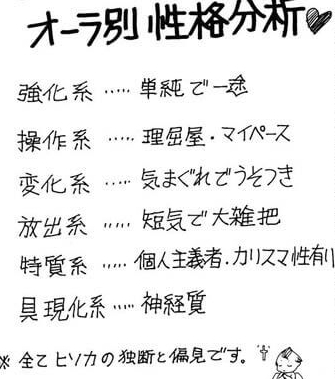 オーラ別性格分析♥
強化系‥‥‥単純で一途
操作系‥‥‥理屈屋・マイペース
変化系‥‥‥気まぐれでうそつき
放出系‥‥‥短気で大雑把
特質系‥‥‥個人主義者・カリスマ性有り
具現化系‥‥‥神経質
※全てヒソカの独断と偏見です。